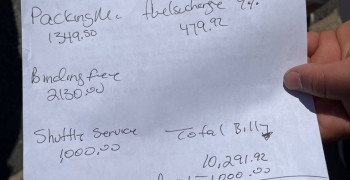 Packing M. fuelsurcharge 9%
1349.50 479.92
Binding fee
2130.00
Shuttle Service Total Bill
1000.00
10,291.92
1000.00